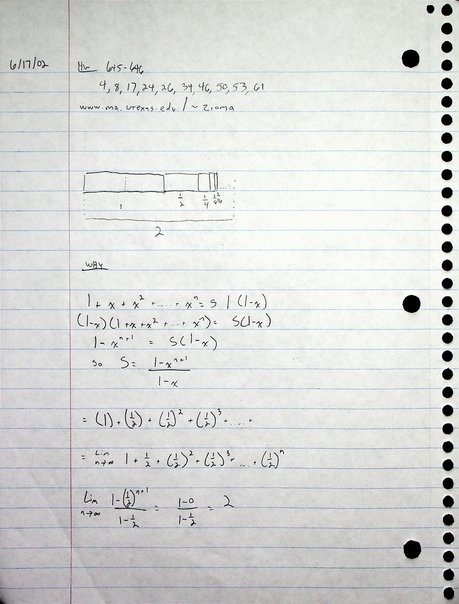 6/17/02 HW 645-646
4, 8, 17, 24, 26, 34, 46, 50, 53, 61
www.ma.utexas.edu/~zioma
1 1/2 1/4 1/8
2
WHY
1 + x + x² + ..... + xⁿ = S | (1-x)
(1-x)(1 + x + x² + ... + xⁿ) = S(1-x)
1 - xⁿ⁺¹ = S(1-x)
so S = (1-xⁿ⁺¹)/(1-x)
= (1) + (1/2) + (1/2)² + (1/2)³ + .....
= Lim n→∞ 1 + 1/2 + (1/2)² + (1/2)³ + ... + (1/2)ⁿ
Lim n→∞ (1-(1/2)ⁿ⁺¹)/(1-1/2) = (1-0)/(1-1/2) = 2